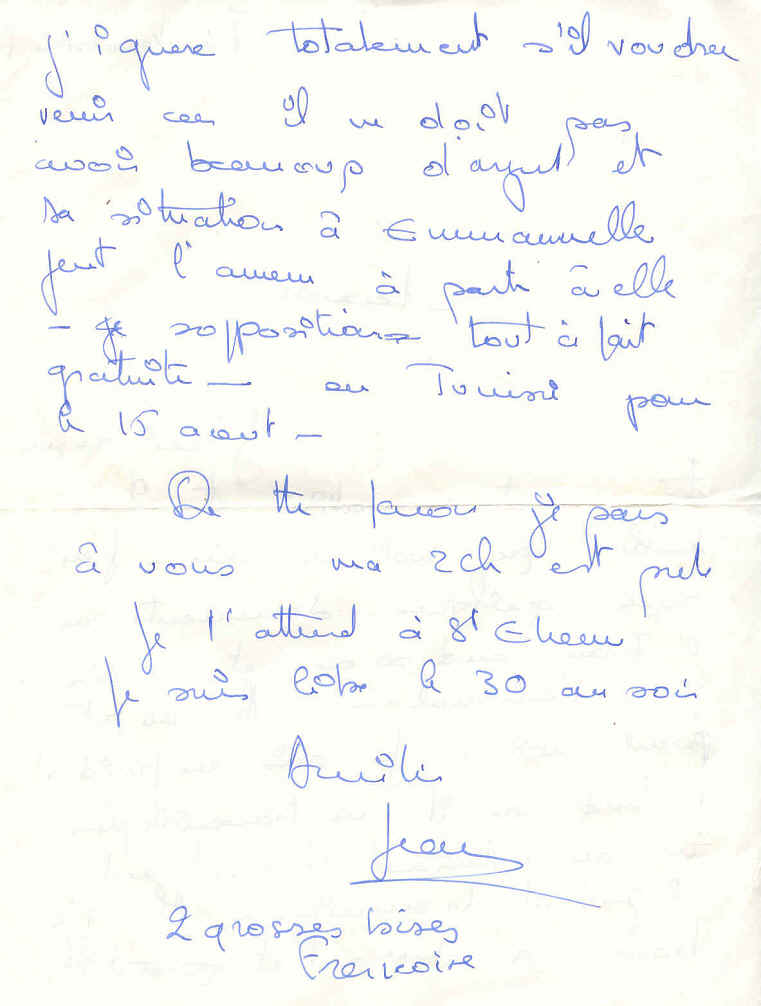 j'ignore totalement s'il voudra
venir car il ne doit pas
avoir beaucoup d'argent et
sa situation à Emmanuelle
peut l'amener à partir à elle
- supposition tout à fait
gratuite - en Tunisie pour
le 15 aout -
De tte facon je pars
à vous ma 2ch est prete
Je l'attend à St Etienne
Je suis libre le 30 au soir
Amitiés
Jean
2 grosses bises
Francoise